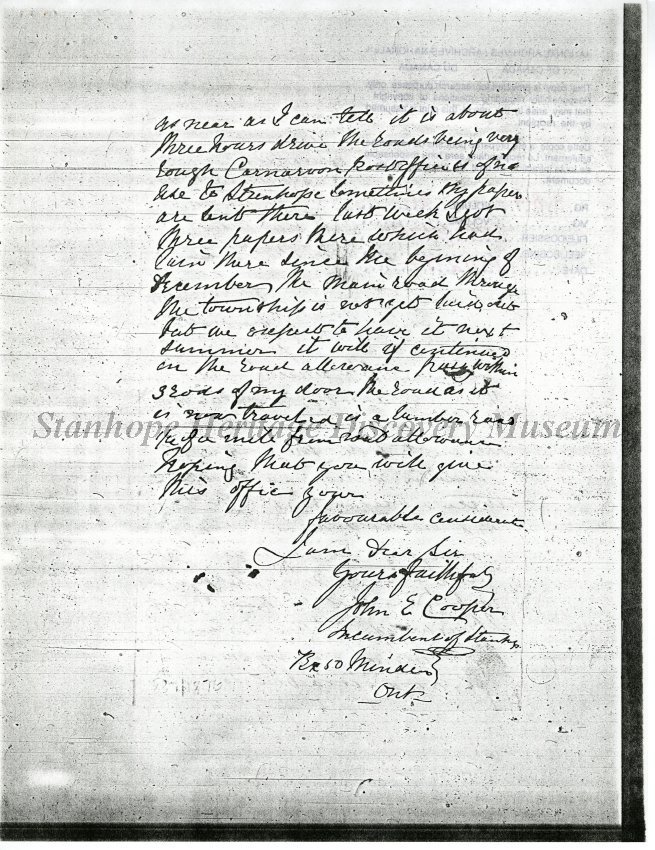 as near as I can tell it is about
three hours drive the roads being very
rough Carnarvon post office is of no
use to Stanhope Sometimes my papers
are sent there last week I got
three papers there which had
lain there since the begining of
December The main road through
the township is not yet
but we expect to have it next
summer it will if continued
on the road allowance pass within
3 rods of my door the road as it
is now traveled is a lumber road
half a mile from road allowance
Hoping that you will give
this office your
favourable
I am Dear Sir
Yours faithfully
John E Cooper
Incumbent of Stanhope
Box 50 Minden
Ont
Stanhope Heritage Discovery Museum